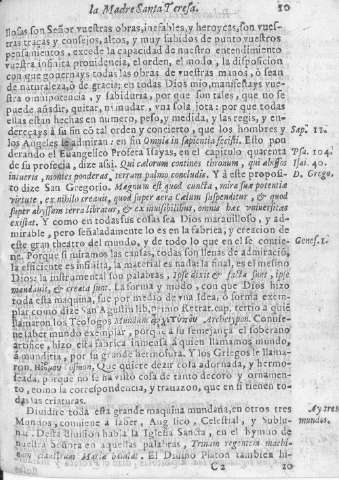 la Madre Santa Teresa. 10
llosas son Señor vuestras obras, inefables, y heroycas, son vues-
tras traças y consejos, altos, y muy subidos de punto vuestros
pensamientos, excede la capacidad de nuestro entendimiento
vuestra infinita prouidencia, el orden, el modo, la disposicion
con que gouernays todas las obras de vuestras manos, ò sean
de naturaleza, ò de gracia; en todas Dios mio, manifestays vues-
tra omnipotencia, y sabiduria, por que son tales, que no se
puede añadir, quitar, ni mudar, vna sola jota: por que todas
ellas estan hechas en numero, peso, y medida, y las regis, y en-
dereçays à su fin cõ tal orden y concierto, que los hombres y
los Angeles le admiran: en fin Omnia in sapientia fecisti. Esto pon
derando el Euangelico Profeta Isayas, en el capitulo quarenta
de su profecia, dize assi. Qui cælorum contines thronum, qui abyssos
intueris, montes ponderas, terram palmo concludis. Y à este proposi-
to dize San Gregorio. Magnum est quod cuncta, mira suæ potentiæ
virtute, ex nihilo creauit, quod super aera Cælum suspenditur, & quod
super abyssum terra libratur, & ex inuisibilibus, omnia hæc vniuersitas
existat. Y como en todas sus cosas sea Dios marauilloso, y ad-
mirable, pero señaladamente lo es en la fabrica, y creacion de
este gran theatro del mundo, y de todo lo que en el se contie-
ne. Porque si miramos las causas, todas son llenas de admiraciõ,
la efficiente es infinita, la material es nada, la final, es el mesmo
Dios; la instrumental son palabras, Ipse dixit & facta sunt, ipse
mandauit, & creata sunt. La forma y modo, con que Dios hizo
toda esta maquina, fue por medio de vna Idea, ò forma exem-
plar como dize San Agustin lib. primo Retrat. cap. tertio a quiẽ
llamaron los Teologos Mundum Archetypon. Conuie-
ne saber mundo exemplar, porque à su semejança el soberano
artifice, hizo esta fabrica inmensa à quien llamamos mundo,
à munditia, por su grande hermosura. Y los Griegos le llama-
ron, cosmon, Que quiere dezir cosa adornada, y hermo-
seada, porque no se ha visto cosa de tanto decoro y ornamen-
to, como la correspondencia, y trauazon, que en si tienen to-
das las criaturas.
Diuidire toda esta grande maquina mundana, en otros tres
Mundos, conuiene a saber, Angelico, Celestial, y Sublu-
nar. Desta diuision habla la Iglesia Santa, en el hymno de
nuestra Señora en aquellas palabras, Trinam regentem machi-
nam claustrum Mariæ baiulat. El Diuino Platon tambien hi-
C 2 zo
Sap. 11.
Psa. 104.
Isai. 40.
D. Grego.
Genes. 1.
Ay tres
mundos.